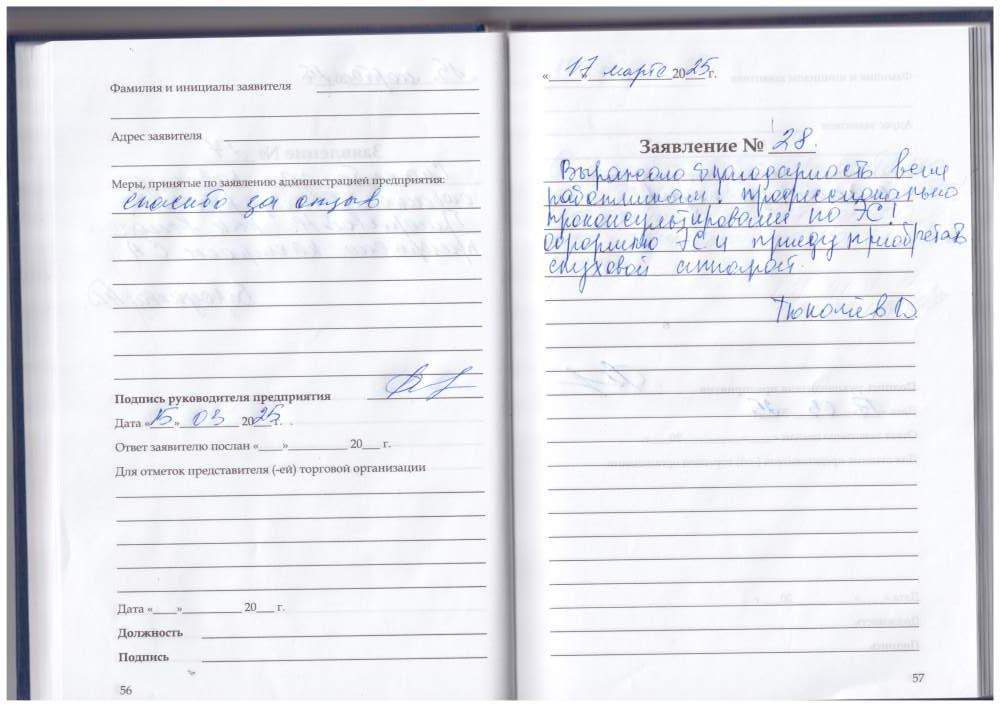 Фамилия и инициалы заявителя
Адрес заявителя
Меры, принятые по заявлению администрацией предприятия:
спасибо за отзыв
Подпись руководителя предприятия
Дата «15» 03 2025г.
Ответ заявителю послан «___»__________ 20___ г.
Для отметок представителя (-ей) торговой организации
Дата «____»__________ 20___ г.
Должность
Подпись
56
«17 марта 2025г.
Заявление № 28.
Выражаю благодарность всем
работникам! профессионально
проконсультировали по ЭС!
Оформлю ЭС и приеду приобретать
слуховой аппарат.
57